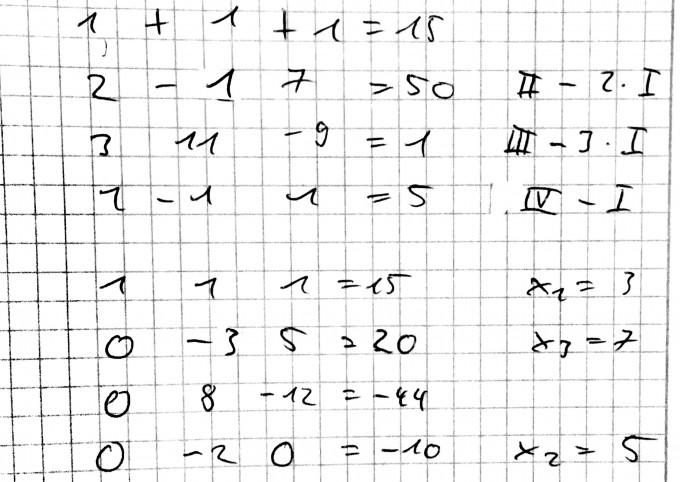 1 + 1 + 1 = 15
2 - 1 7 = 50 II - 2 · I
3 11 -9 = 1 III - 3 · I
1 - 1 1 = 5 IV - I
1 1 1 = 15 x₁ = 3
0 -3 5 = 20 x₃ = 7
0 8 -12 = -44
0 -2 0 = -10 x₂ = 5